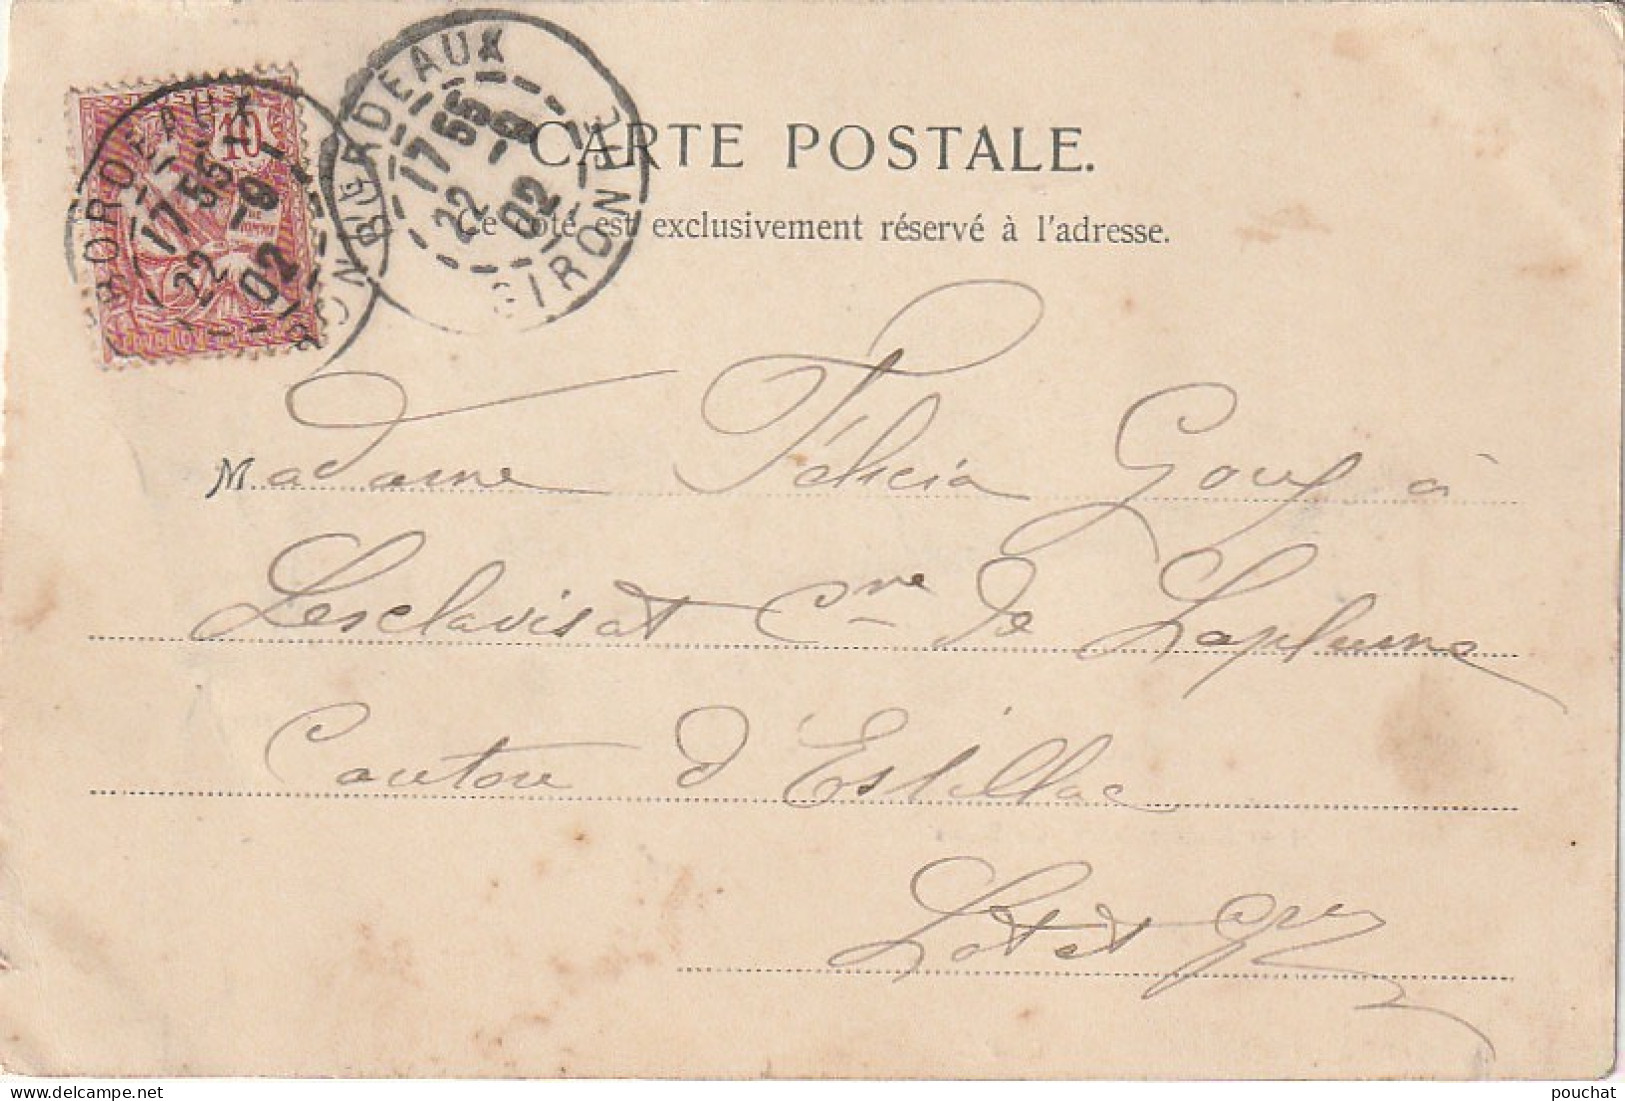 BORDEAUX
17 55
22 -9
02
GIRONDE
BORDEAUX
17 55
22 -9
02
GIRONDE
10
CARTE POSTALE.
Ce côté est exclusivement réservé à l'adresse.
Madame Félicia Goux à
Lesclavisat Cne de Laplume
Canton d'Estillac
Lot et Gne
pouchat